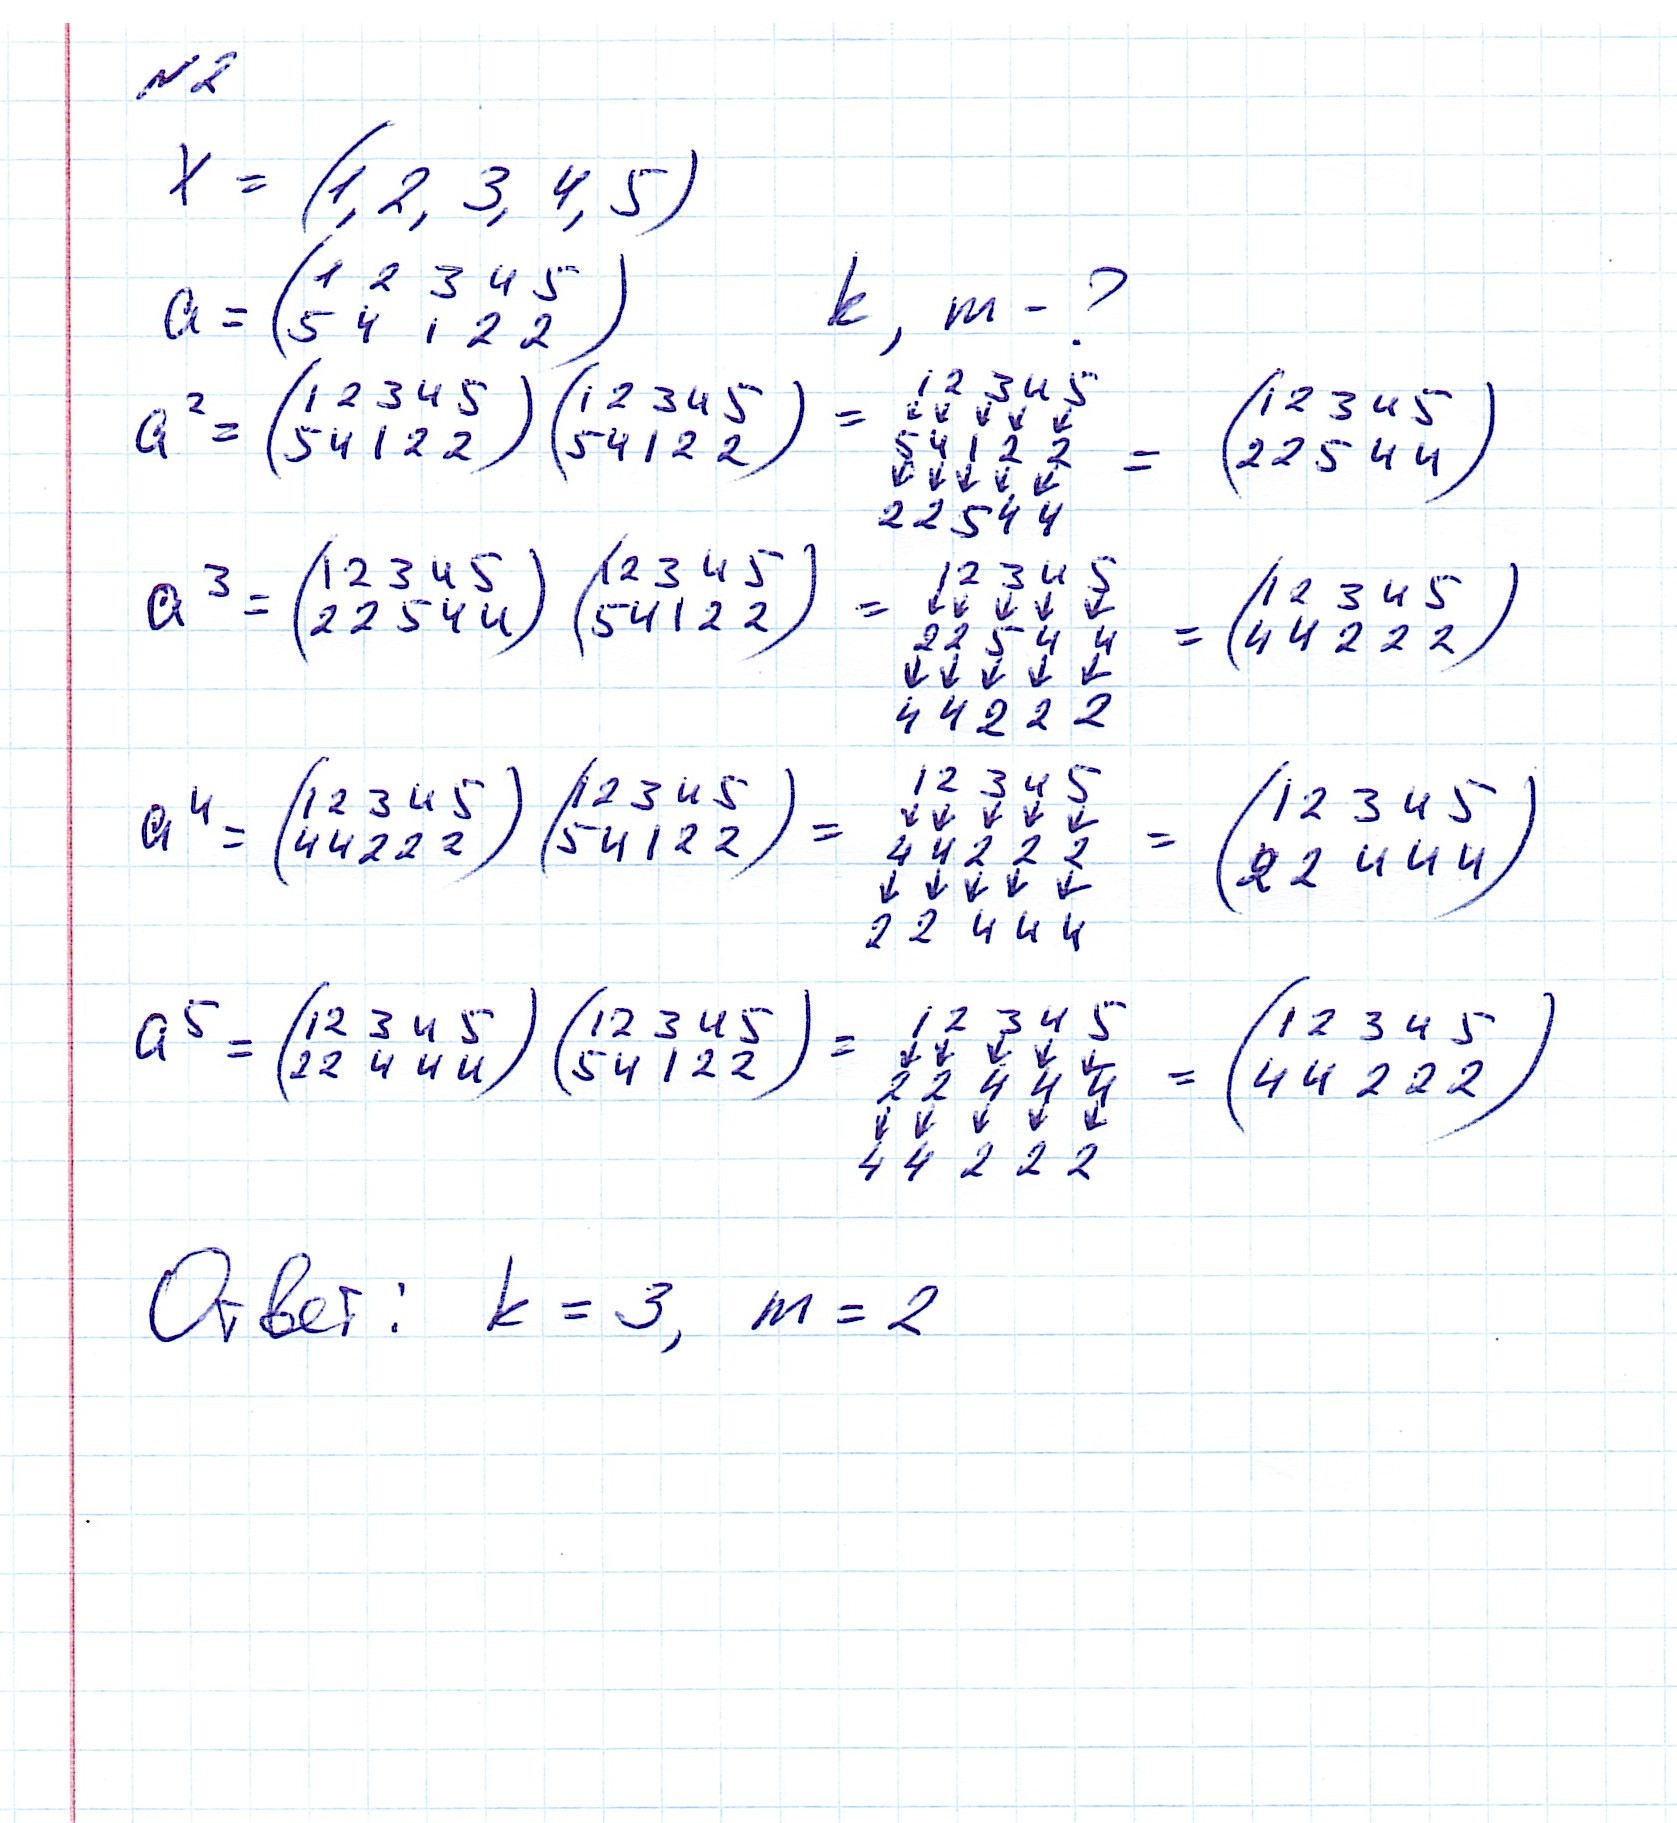 №2
X = (1, 2, 3, 4, 5)
a = (1 2 3 4 5 / 5 4 1 2 2) k, m - ?
a² = (1 2 3 4 5 / 5 4 1 2 2) (1 2 3 4 5 / 5 4 1 2 2) = 1 2 3 4 5 ↓ ↓ ↓ ↓ ↓ 5 4 1 2 2 ↓ ↓ ↓ ↓ ↓ 2 2 5 4 4 = (1 2 3 4 5 / 2 2 5 4 4)
a³ = (1 2 3 4 5 / 2 2 5 4 4) (1 2 3 4 5 / 5 4 1 2 2) = 1 2 3 4 5 ↓ ↓ ↓ ↓ ↓ 2 2 5 4 4 ↓ ↓ ↓ ↓ ↓ 4 4 2 2 2 = (1 2 3 4 5 / 4 4 2 2 2)
a⁴ = (1 2 3 4 5 / 4 4 2 2 2) (1 2 3 4 5 / 5 4 1 2 2) = 1 2 3 4 5 ↓ ↓ ↓ ↓ ↓ 4 4 2 2 2 ↓ ↓ ↓ ↓ ↓ 2 2 4 4 4 = (1 2 3 4 5 / 2 2 4 4 4)
a⁵ = (1 2 3 4 5 / 2 2 4 4 4) (1 2 3 4 5 / 5 4 1 2 2) = 1 2 3 4 5 ↓ ↓ ↓ ↓ ↓ 2 2 4 4 4 ↓ ↓ ↓ ↓ ↓ 4 4 2 2 2 = (1 2 3 4 5 / 4 4 2 2 2)
Ответ: k = 3, m = 2